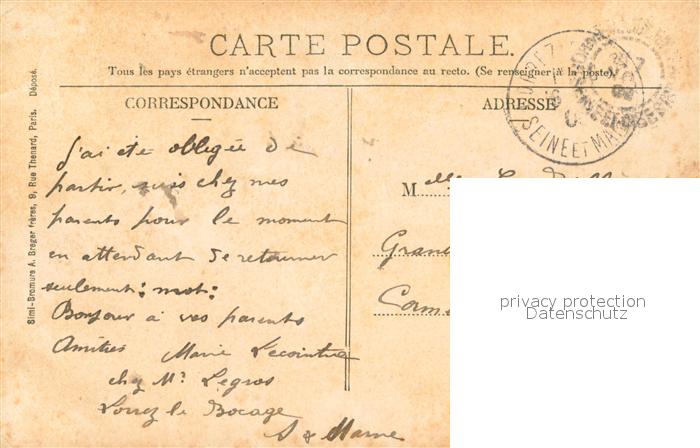 CARTE POSTALE.
Tous les pays étrangers n'acceptent pas la correspondance au recto. (Se renseigner à la poste).
CORRESPONDANCE
ADRESSE
J'ai été obligée de
partir, suis chez mes
parents pour le moment
en attendant de retourner
seulement: mot:
Bonjour à vos parents
Amitiés Marie Lecointre
chez Mr Legros
Lorrez le Bocage
S & Marne
Melle
Gran
Cam
SEINE ET MA
Simi-Bromure A. Breger frères, 9, Rue Thenard, Paris. Déposé.
privacy protection
Datenschutz